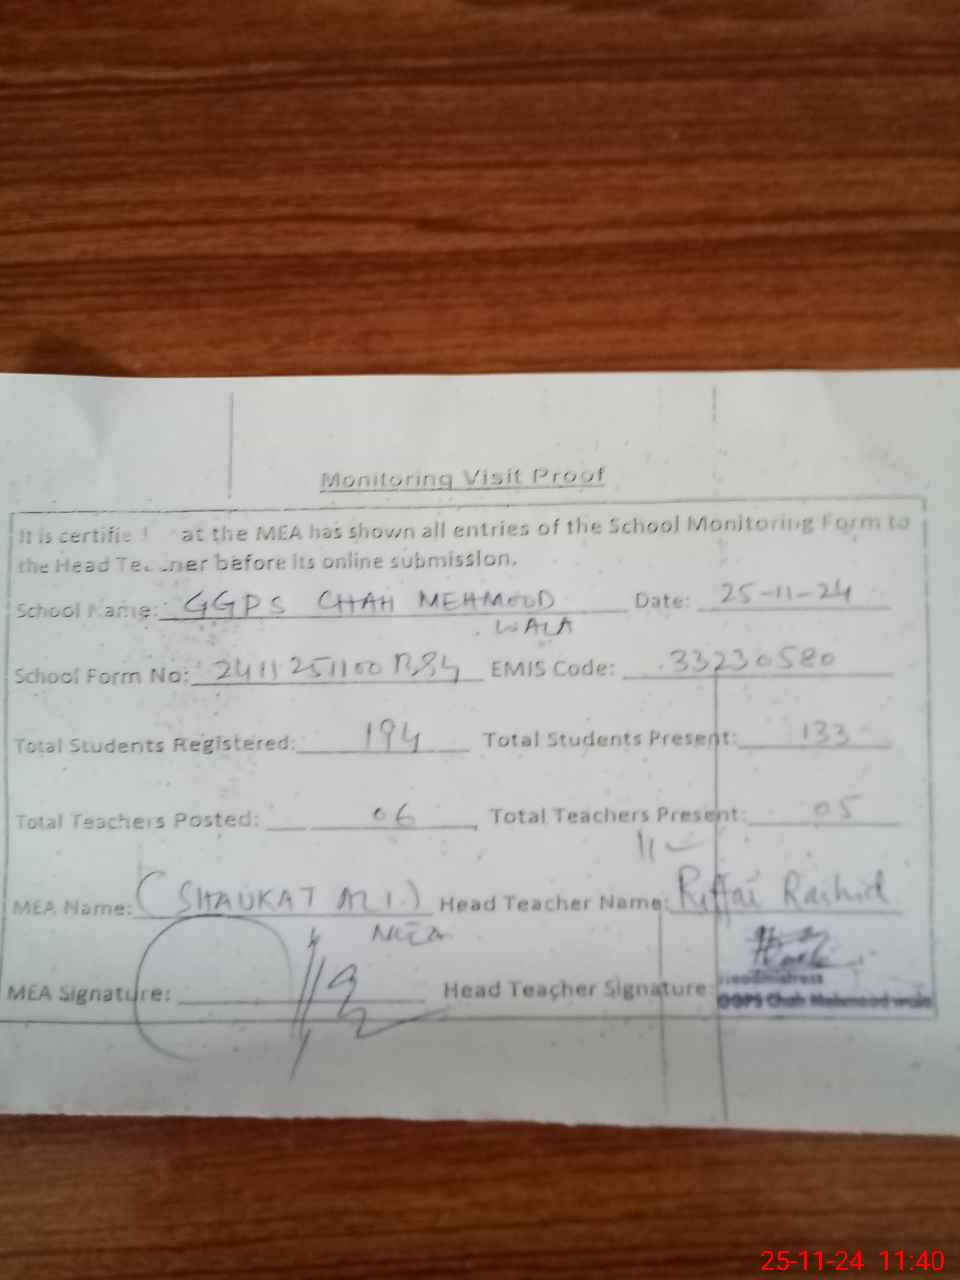 Monitoring Visit Proof
It is certified at the MEA has shown all entries of the School Monitoring Form to
the Head Teacher before its online submission.
School Name: GGPS CHAH MEHMOOD Date: 25-11-24
WALA
School Form No: EMIS Code: 33230580
Total Students Registered: 194 Total Students Present: 133
Total Teachers Posted: 06 Total Teachers Present: 05
MEA Name: (SHAUKAT ALI) Head Teacher Name: Rashid
MEA Signature: Head Teacher Signature:
Headmistress
GGPS Chah Mehmood wala
25-11-24 11:40